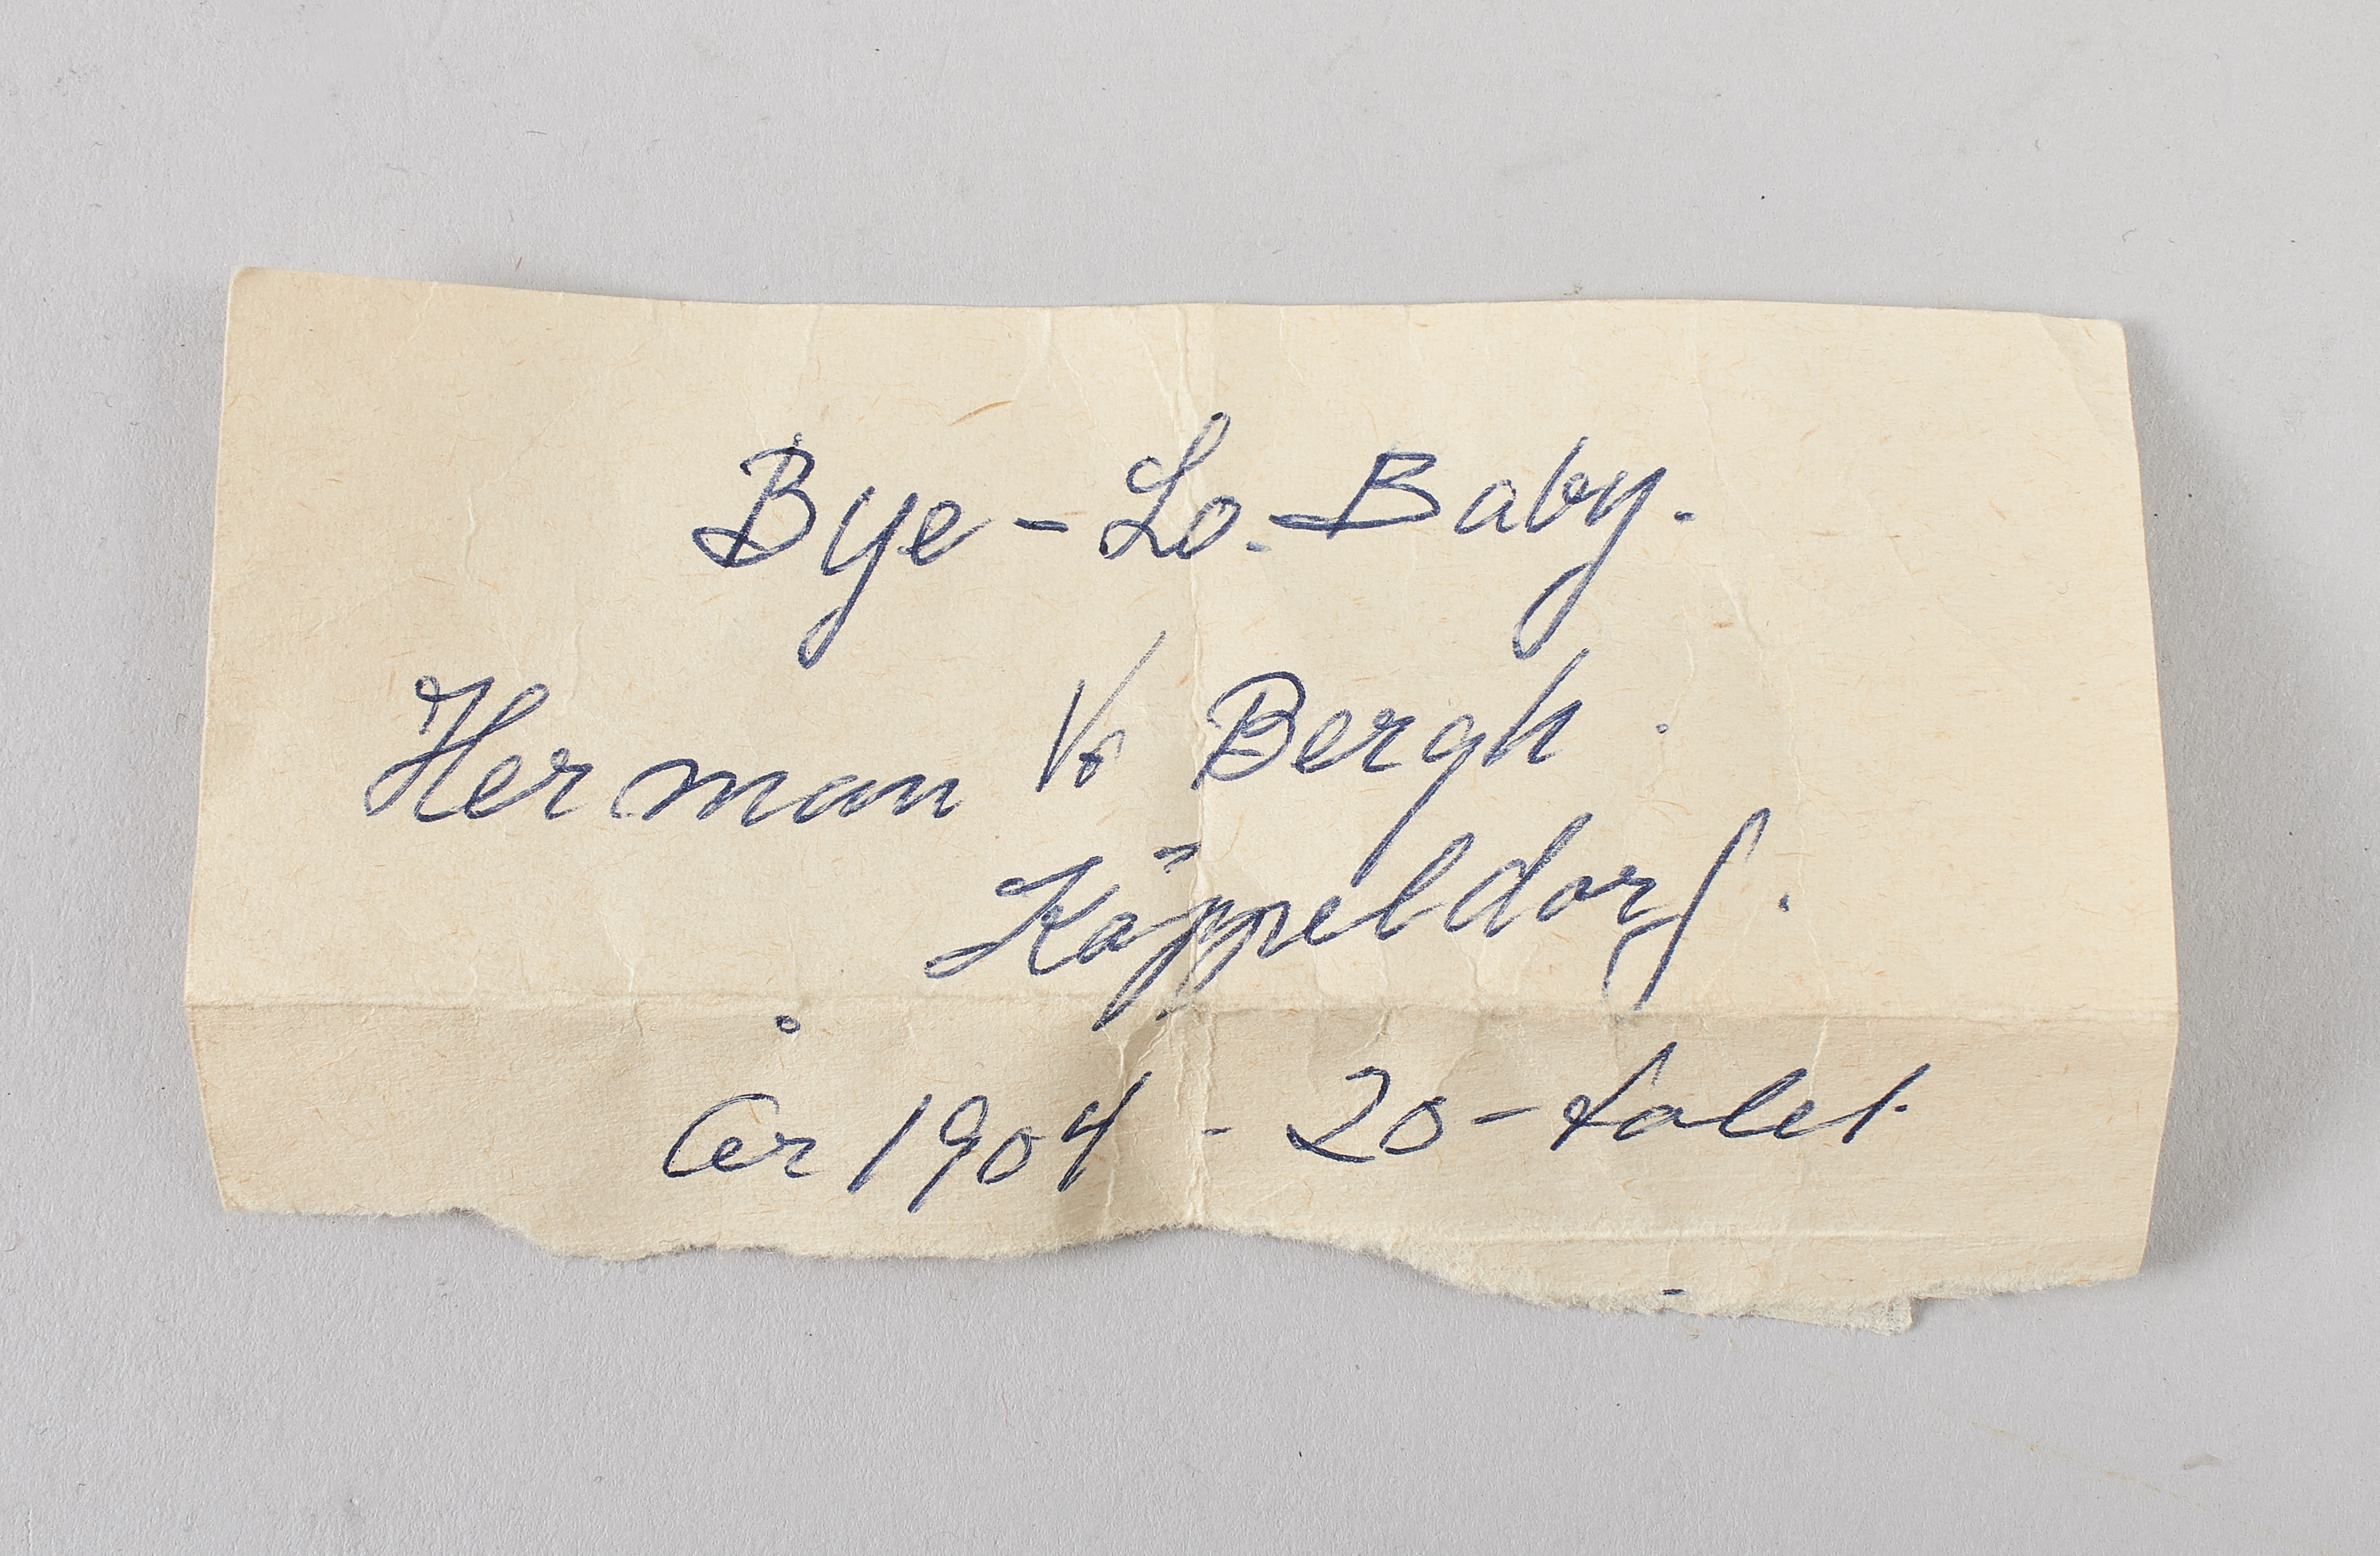 Bye-Lo-Baby.
Herman Vo Bergh.
Köppeldorf.
År 1904 - 20-talet